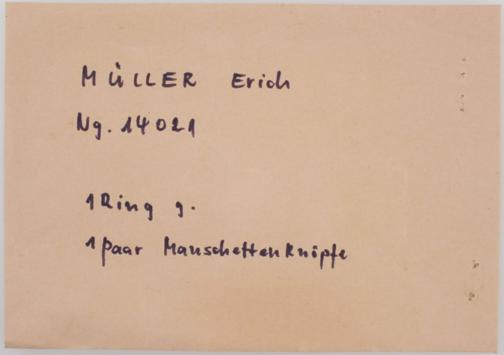 MÜLLER Erich
Ng. 14021
1 Ring g.
1 paar Manschettenknöpfe